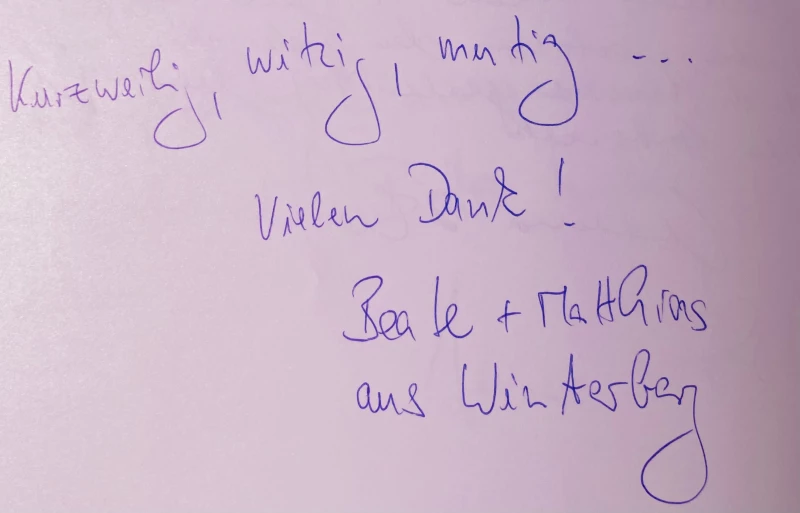 Kurzweilig, witzig, mutig ...
Vielen Dank!
Beate + Matthias
aus Winterberg